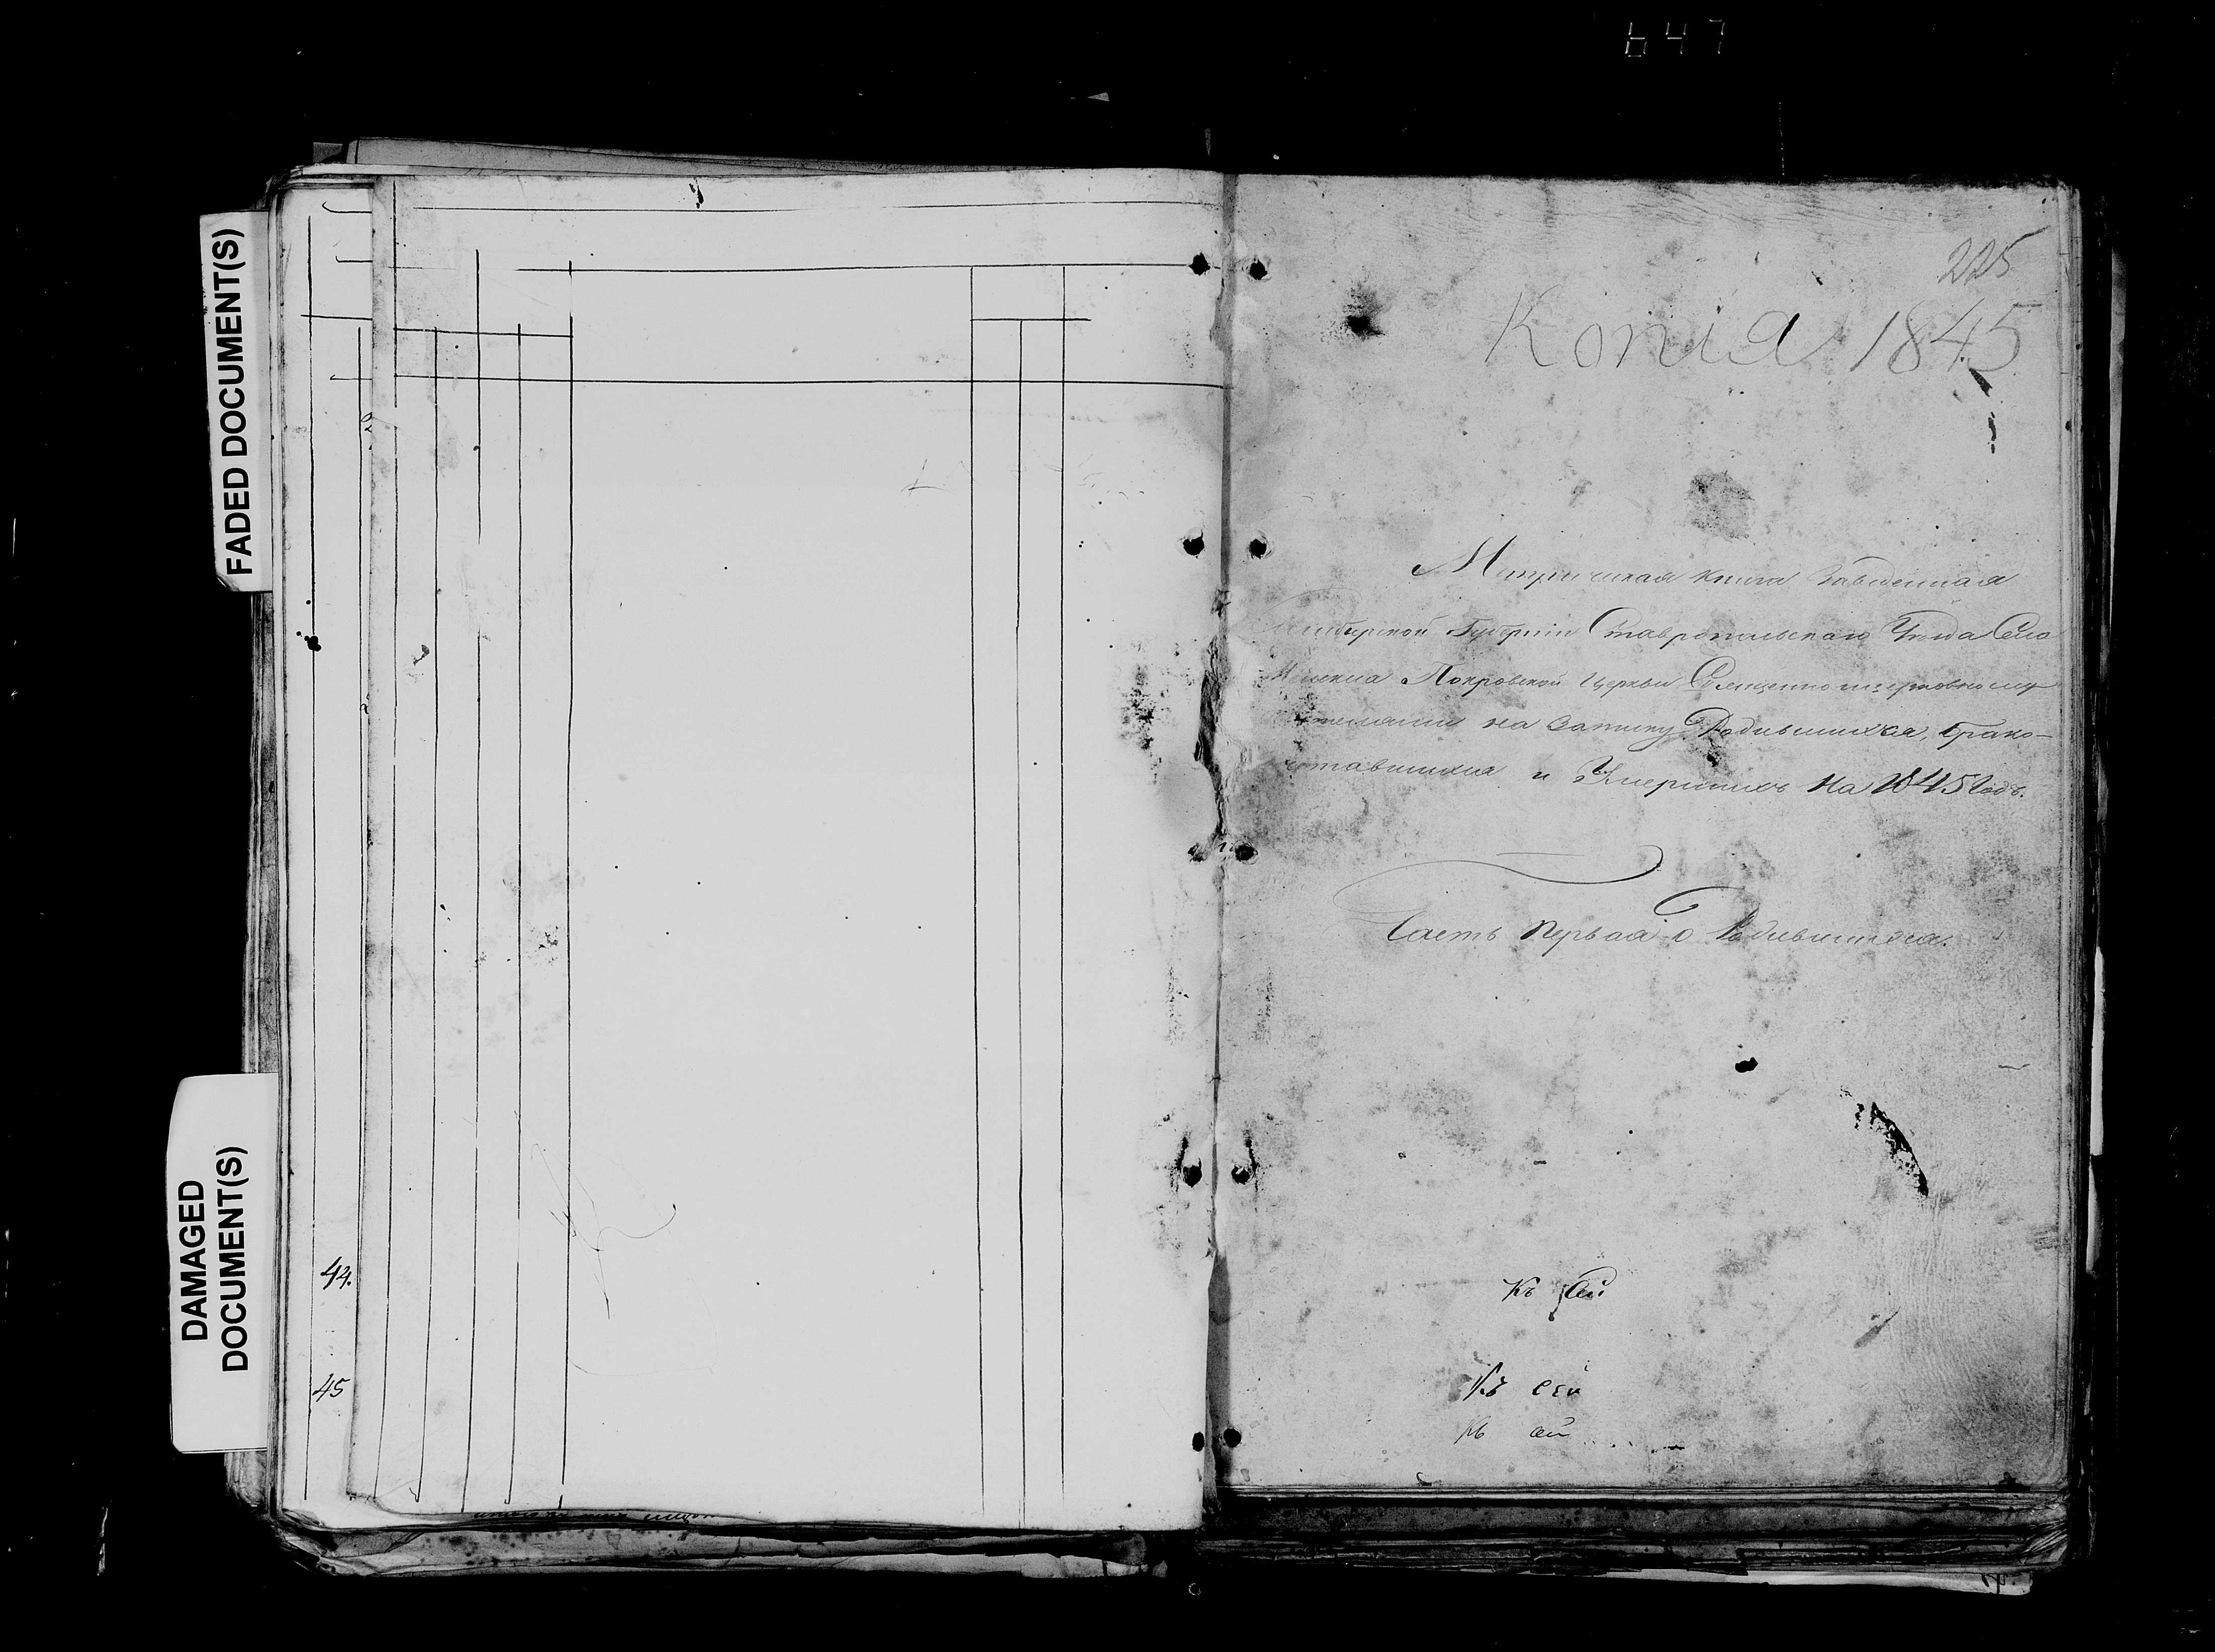 647
FADED DOCUMENT(S)
DAMAGED
DOCUMENT(S)
44.
45
225
Копiя 1845
Метрическая книга заведенная
Симбирской Губернiи Ставропольскаго Уезда Села
Покровской церкви Священноцерковнослу
жителями на записку Родившихся, брако-
сочтавшихся и Умершихъ На 1845 Годъ.
Часть первая о Родившихся.
Къ сей
Къ сей
Къ сей